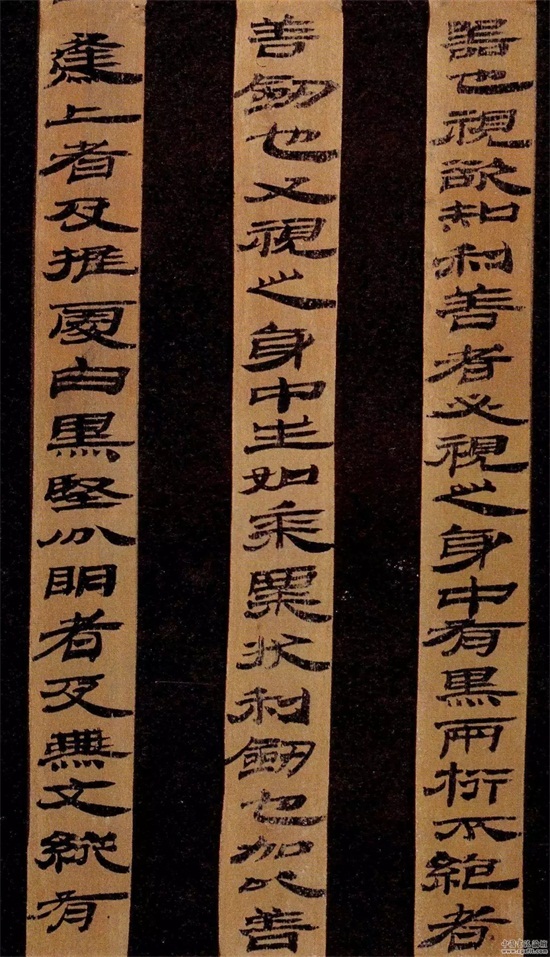 器也視欲知利善者必視之身中有黑兩桁不絕者
善劍也又視之身中生如黍粟狀利劍也加以善
燕上者及推處白黑堅分明者及無文縱有